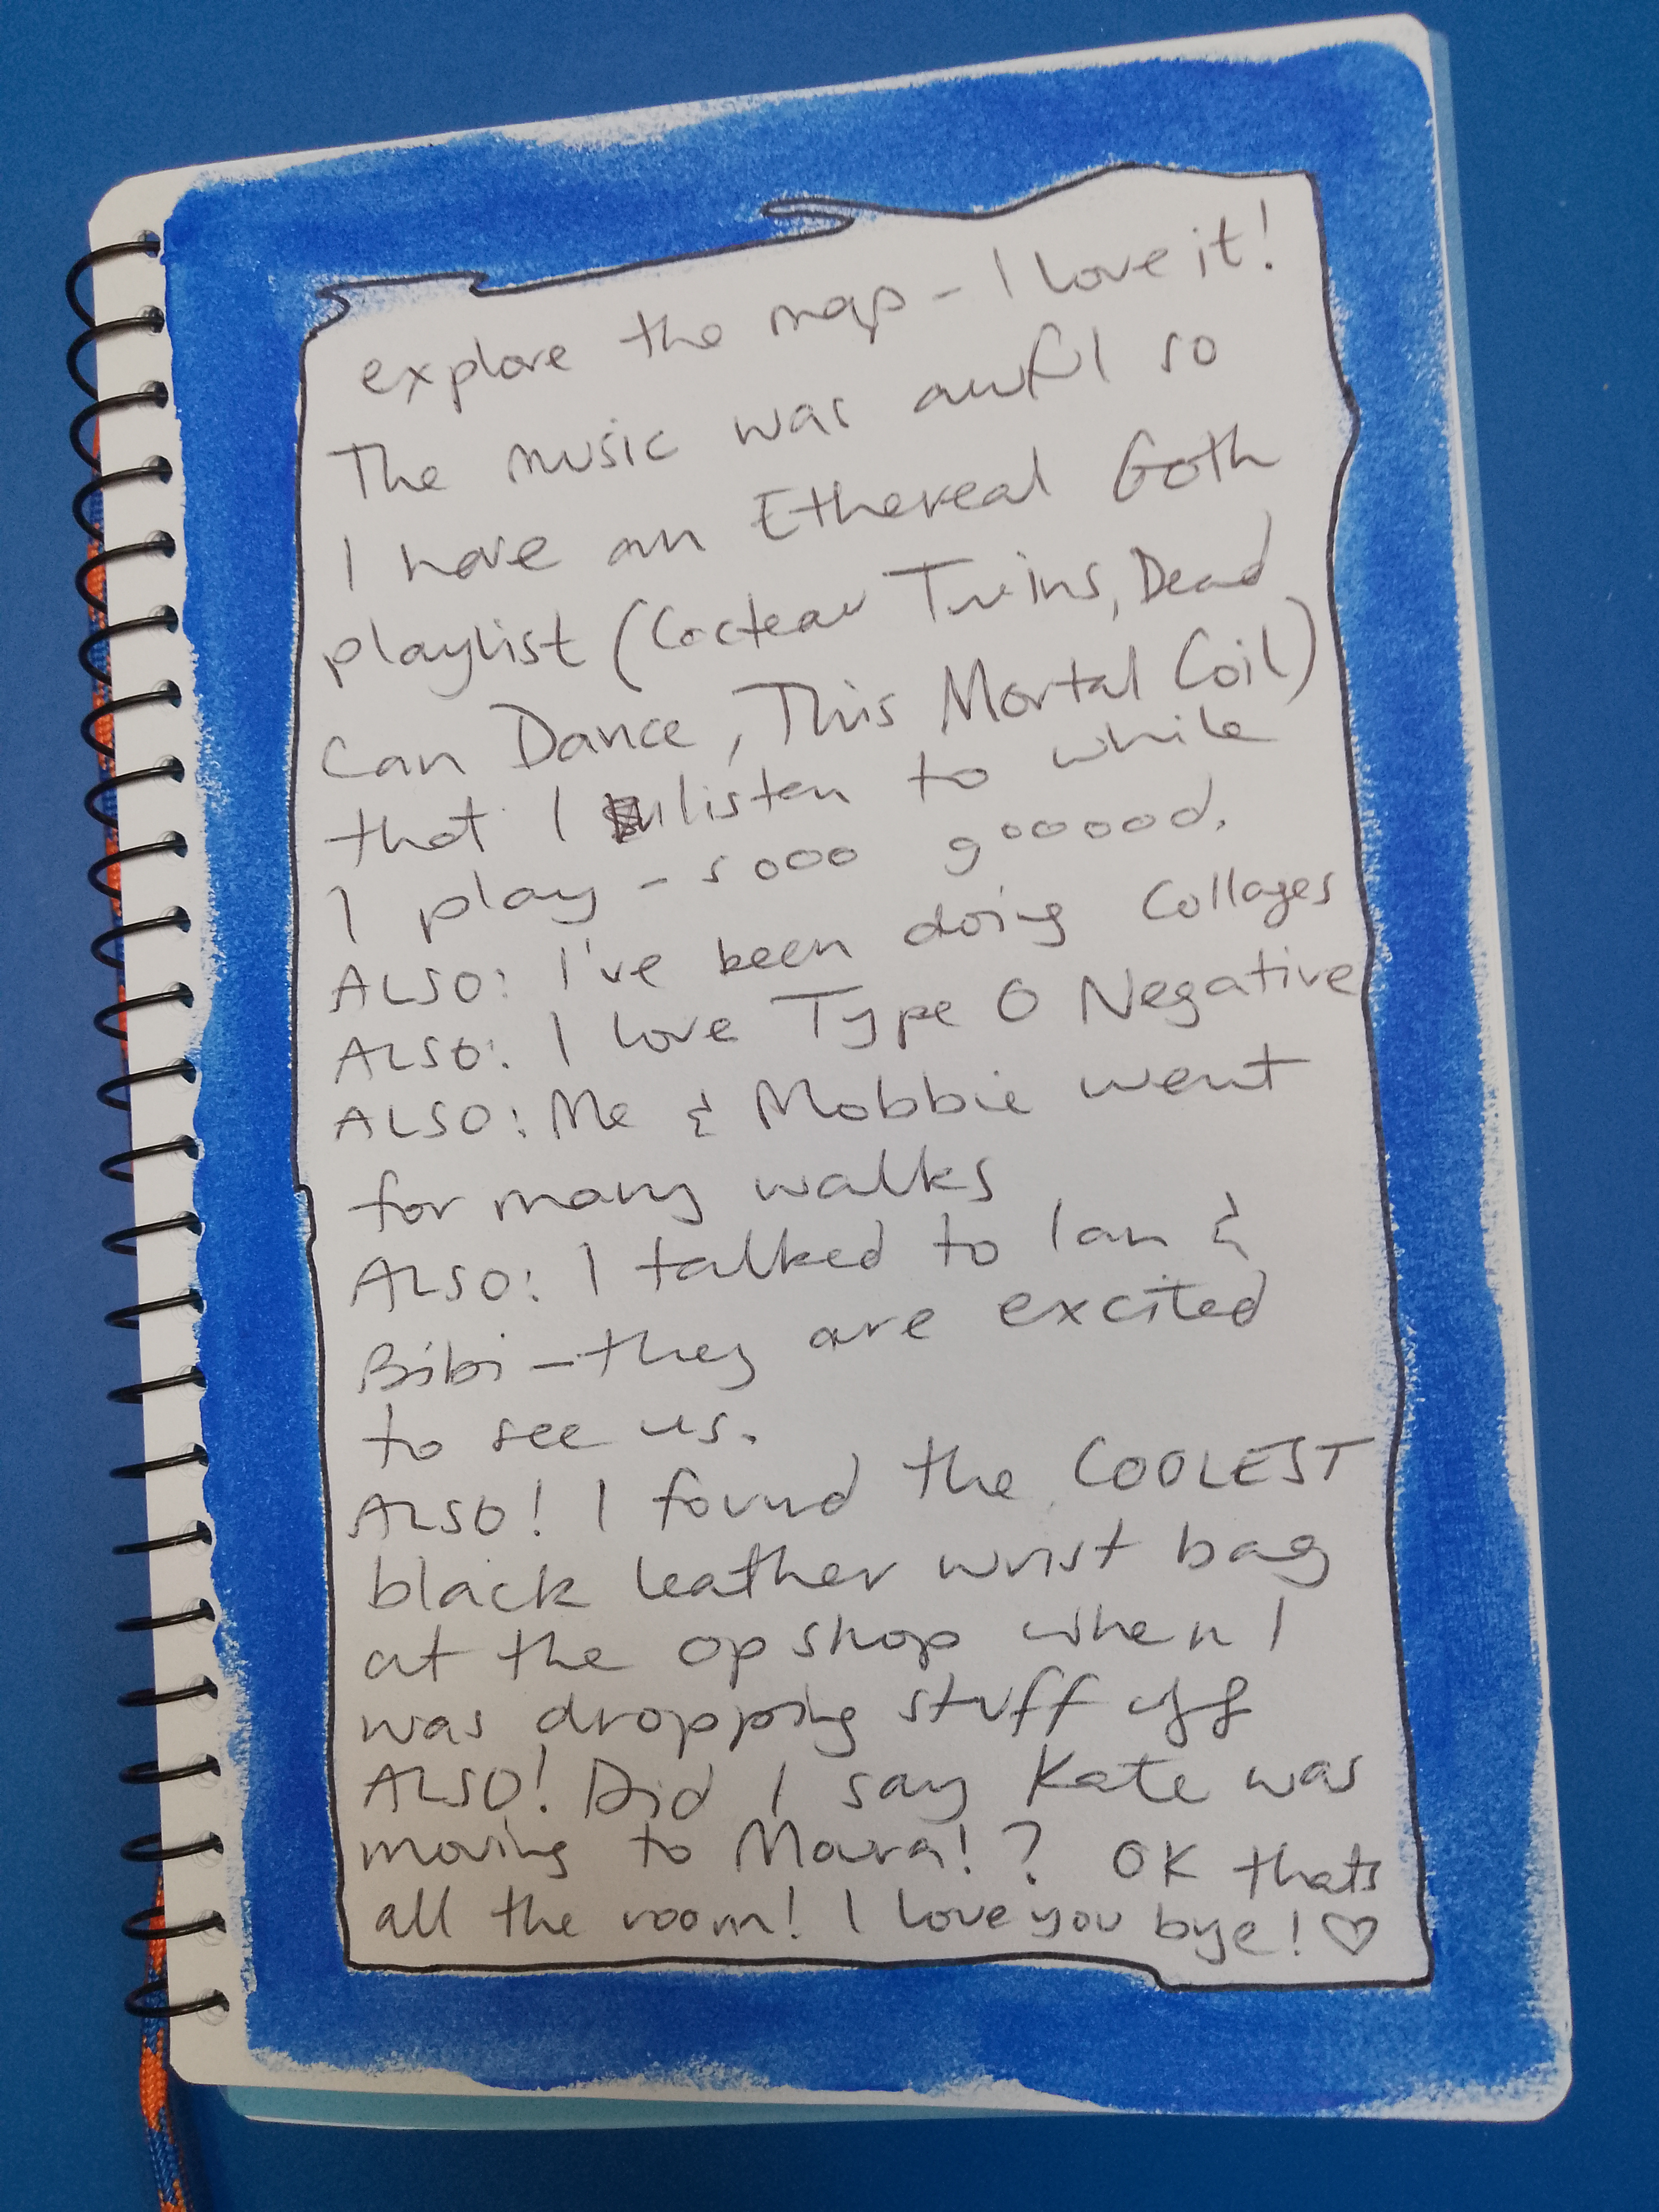 explore the map - I love it!
The music was awful so
I have an Ethereal Goth
playlist (Cocteau Twins, Dead
Can Dance, This Mortal Coil)
that I listen to while
I play - sooo gooood.
ALSO: I've been doing collages
ALSO: I love Type O Negative
ALSO: Me & Mobbie went
for many walks
ALSO: I talked to Ian &
Bibi - they are excited
to see us.
ALSO! I found the COOLEST
black leather wrist bag
at the op shop when I
was dropping stuff off
ALSO! Did I say Kate was
moving to !? OK thats
all the room! I love you bye! ♡